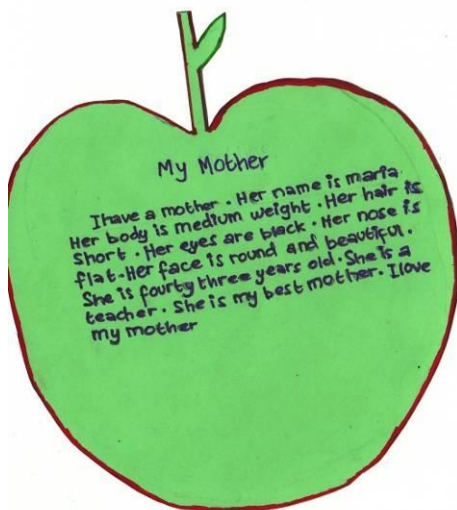 My Mother
I have a mother. Her name is maria.
Her body is medium weight. Her hair is
short. Her eyes are black. Her nose is
flat. Her face is round and beautiful.
She is fourty three years old. She is a
teacher. She is my best mother. I love
my mother